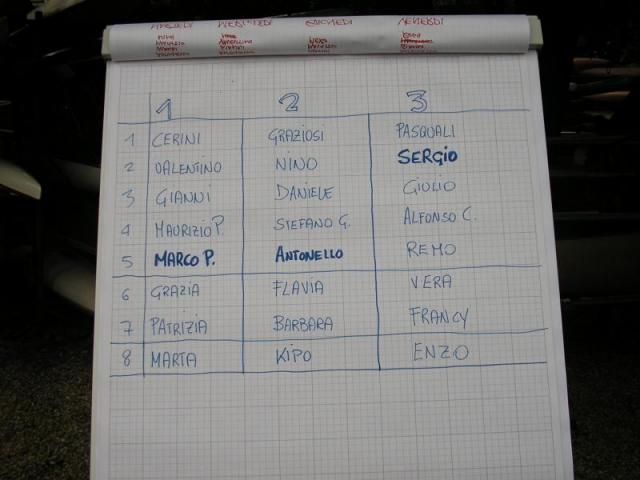 MERCOLEDI VENERDI
1 2 3
1 CERINI GRAZIOSI PASQUALI
2 VALENTINO NINO SERGIO
3 GIANNI DANIELE GIULIO
4 MAURIZIO P. STEFANO G. ALFONSO C.
5 MARCO P. ANTONELLO REMO
6 GRAZIA FLAVIA VERA
7 PATRIZIA BARBARA FRANCY
8 MARTA KIPO ENZO